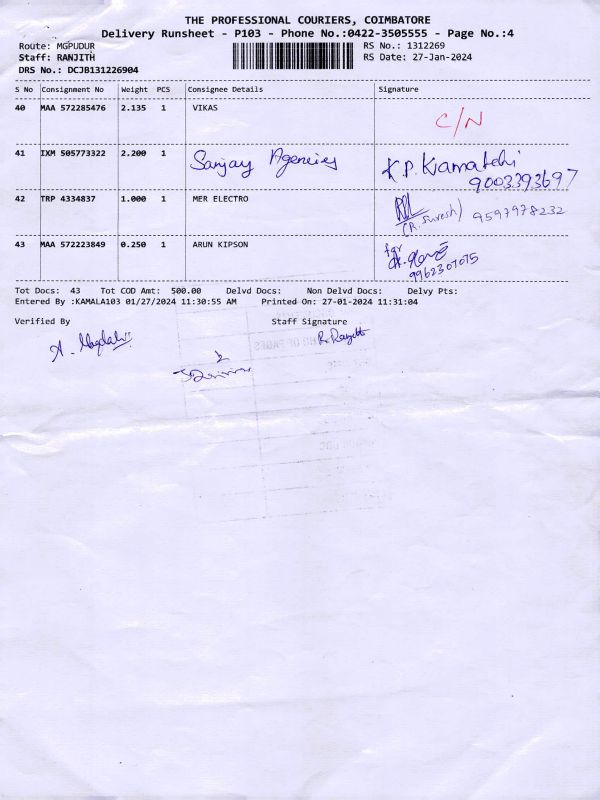 THE PROFESSIONAL COURIERS, COIMBATORE
Delivery Runsheet - P103 - Phone No.:0422-3505555 - Page No.:4
Route: MGPUDUR RS No.: 1312269
Staff: RANJITH RS Date: 27-Jan-2024
DRS No.: DCJB131226904
S No Consignment No Weight PCS Consignee Details Signature
40 MAA 572285476 2.135 1 VIKAS C/N
41 IXM 505773322 2.200 1 Sanjay Agencies K.P. Kamatchi
9003393697
42 TRP 4334837 1.000 1 MER ELECTRO
(R. Suresh) 9597978232
43 MAA 572223849 0.250 1 ARUN KIPSON for
9962307075
Tot Docs: 43 Tot COD Amt: 500.00 Delvd Docs: Non Delvd Docs: Delvy Pts:
Entered By :KAMALA103 01/27/2024 11:30:55 AM Printed On: 27-01-2024 11:31:04
Verified By Staff Signature